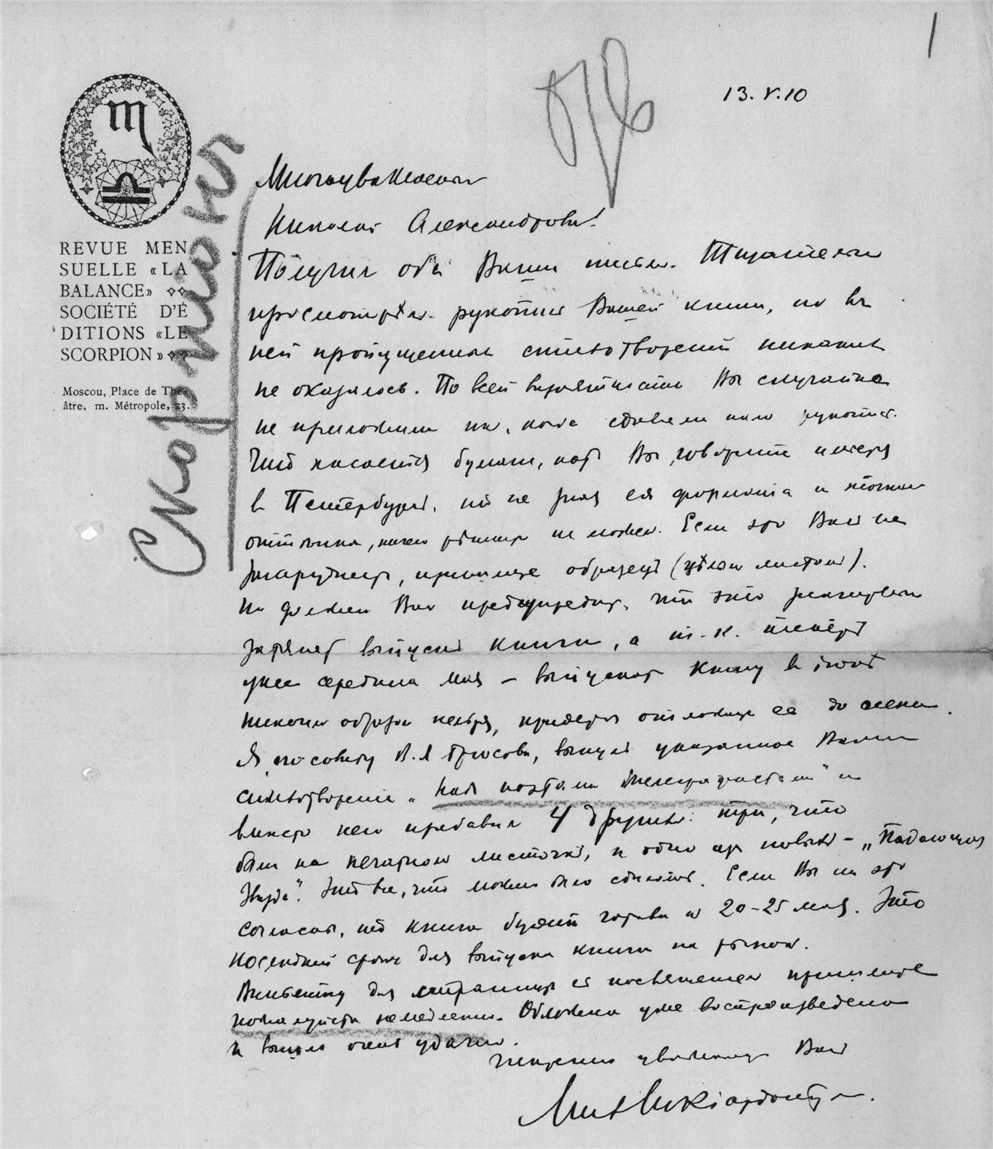 1
отв
13.V.10
Скорпион
REVUE MEN
SUELLE «LA
BALANCE»
SOCIÉTÉ D'É
DITIONS «LE
SCORPION»
Moscou, Place de Thé
âtre, m. Métropole, 23.
Многоуважаемый
Николай Александрович!
Получил оба Ваши письма. Тщательно
просмотрѣл рукопись Вашей книги, но въ
ней пропущенных стихотворений никаких
не оказалось. По всей вѣроятности Вы случайно
не приложили их, когда сдавали нам рукопись.
Что касается бумаги, Вы говорите
в Петербургѣ, но не зная ея формата и
оттѣнка, ничего рѣшить не можем. Если это Вас не
затруднит, пришлите образец (цѣлым листом).
Но должен Вас предупредить, что это
затянет выпуск книги, а т. к. теперь
уже середина мая – выпускать книгу в
никоим образом нельзя, придется отложить ее до осени.
Я, по совѣту В. Я Брюсова, выпустил указанное Вами
стихотворение „
вмѣсто него прибавил 4 других: три, что
были на печатном листочкѣ, и одно из новых – „Падающая
Звѣзда“. Это все, что можно было сдѣлать. Если Вы на это
согласны, то книга будет готова к 20-25 мая. Это
послѣдний срок для выпуска книги на рынок.
Виньетку для страницы с посвящением пришлите
пожалуйста немедленно. Обложка уже воспроизведена
и вышла очень удачно.
Искренно уважающий Вас